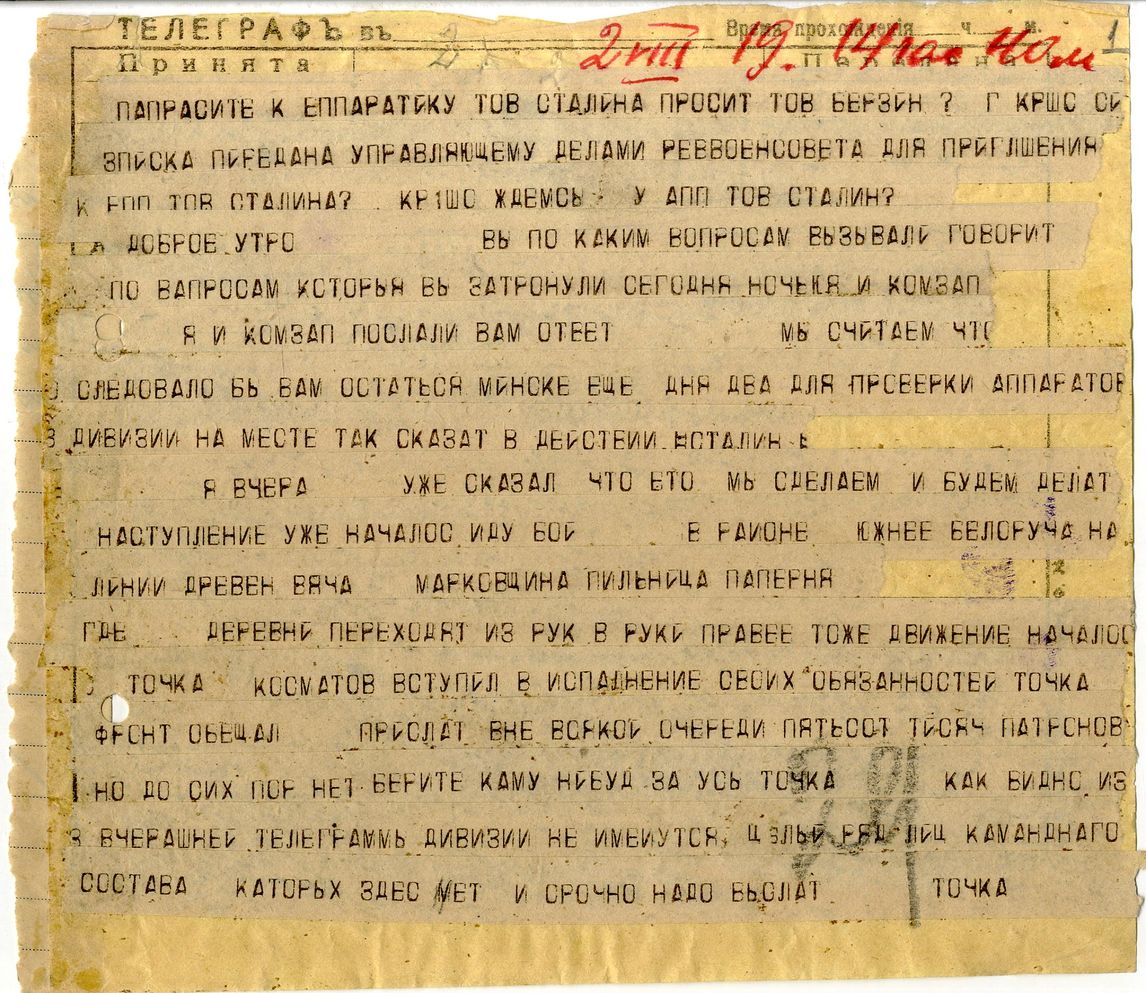 ТЕЛЕГРАФЪ въ Время прохожденія ч. м. 1
Принята 2 VIII 19. 14 час 40 м
ПАПРАСИТЕ К ЕППАРАТЙКУ ТОВ СТАЛЙНА ПРОСИТ ТОВ БЕРЗЙН ? Г КРШС СЙ
ЗПИСКА ПЙРЕДАНА УПРАВЛЯЮЩЕМУ ДЕЛАМИ РЕВВОЕНСОВЕТА ДЛЯ ПРЙГЛШЕНИЯ
К ЕПП ТОВ СТАЛИНА? КР1ШС ЖДЕМСЬ У АПП ТОВ СТАЛИН?
ДОБРОЕ УТРО ВЬ ПО КАКИМ ВОПРОСАМ ВЬЗЬВАЛЙ ГОВОРИТ
ПО ВАПРОСАМ КСТОРЬЯ ВЬ ЗАТРОНУЛИ СЕГОДНЯ НОЧЬЮ И КОМЗАП
Я И КОМЗАП ПОСЛАЛИ ВАМ ОТВЕТ МЬ СЧЙТАЕМ ЧТО
СЛЕДОВАЛО БЬ ВАМ ОСТАТЬСЯ МЙНСКЕ ЕЩЕ ДНЯ ДВА ДЛЯ ПРОВЕРКИ АППАРАТОВ
З ДИВИЗИИ НА МЕСТЕ ТАК СКАЗАТ В ДЕЙСТВИИ СТАЛИН
Я ВЧЕРА УЖЕ СКАЗАЛ ЧТО ЕТО МЬ СДЕЛАЕМ И БУДЕМ ДЕЛАТ
НАСТУПЛЕНИЕ УЖЕ НАЧАЛОС ИДУ БОЙ В РАЙОНЕ ЮЖНЕЕ БЕЛОРУЧА НА
ЛЙНИИ ДРЕВЕН ВЯЧА МАРКОВЩИНА ПИЛЬНИЦА ПАПЕРНЯ
ГДЕ ДЕРЕВНЙ ПЕРЕХОДЯТ ИЗ РУК В РУКЙ ПРАВЕЕ ТОЖЕ ДВИЖЕНИЕ НАЧАЛОС
ТОЧКА КОСМАТОВ ВСТУПЙЛ В ИСПАЛНЕНИЕ СВОИХ ОБЯЗАННОСТЕЙ ТОЧКА
ФРСНТ ОБЕЩАЛ ПРЙСЛАТ ВНЕ ВСЯКОЙ ОЧЕРЕДИ ПЯТЬСОТ ТЙСЯЧ ПАТРСНОВ
НО ДО СИХ ПОР НЕТ БЕРИТЕ КАМУ НЙБУД ЗА УСЬ ТОЧКА КАК ВИДНС ИЗ
З ВЧЕРАШНЕЙ ТЕЛЕГРАММЬ ДИВИЗИИ НЕ ИМЕЙУТСЯ ЦЗЛЬЙ РЯД ЛЙЦ КАМАНДНАГО
СОСТАВА КАТОРЬХ ЗДЕС НЕТ И СРОЧНО НАДО ВЬСЛАТ ТОЧКА